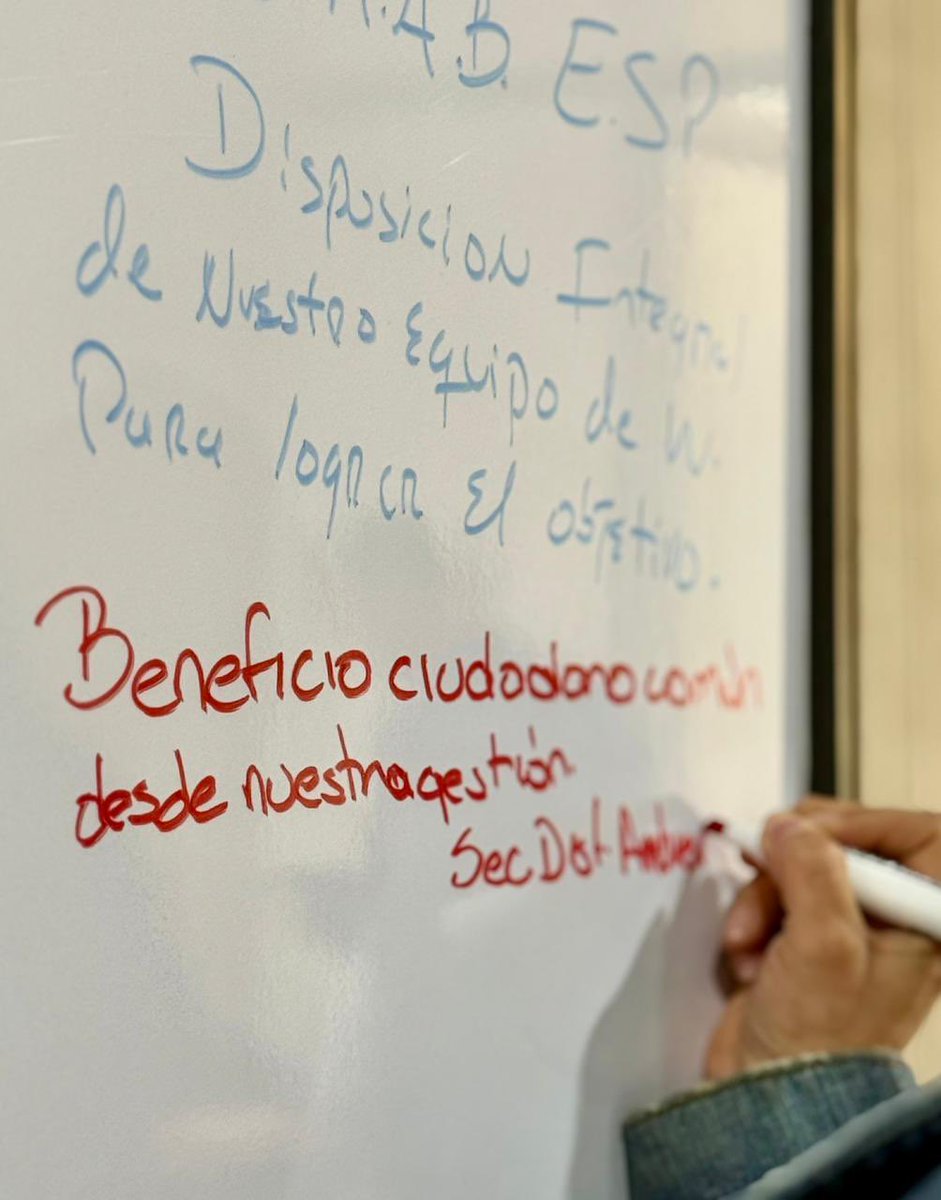 A.B. E.S.P
Disposicion Integral
de Nuestro Equipo de
Para lograr El objetivo.
Beneficio ciudadano común
desde nuestra gestión.
Sec Dist